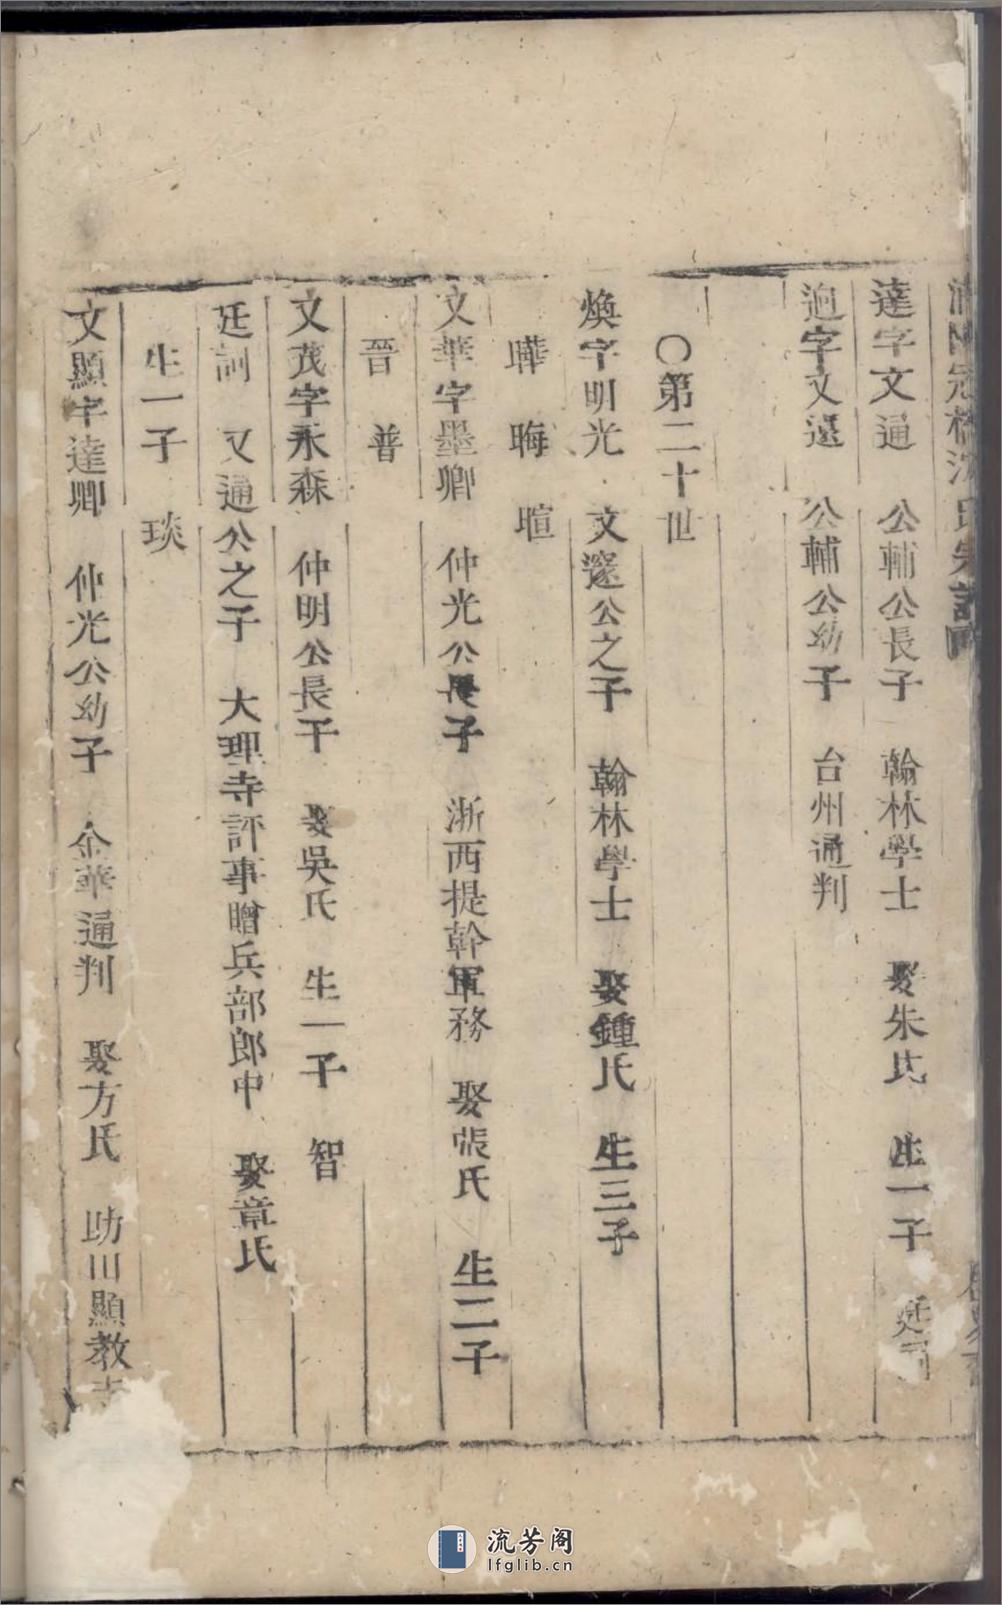 達字文通 公輔公長子 翰林學士 娶朱氏 生一子 廷
迥字文遠 公輔公幼子 台州通判
○第二十世
煥字明光 文邃公之子 翰林學士 娶鍾氏 生三子
曄 晦 暄
文華字墨卿 仲光公長子 浙西提幹軍務 娶張氏 生二子
晉 普
文茂字永森 仲明公長子 娶吳氏 生一子 智
廷訶 文通公之子 大理寺評事贈兵部郎中 娶章氏
生一子 琰
文顯字達卿 仲光公幼子 金華通判 娶方氏 助田顯教
流芳阁
lfglib.cn